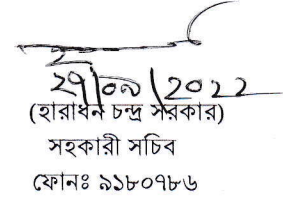 ২৭/০৯/2022
(হারাধন চন্দ্র সরকার)
সহকারী সচিব
ফোনঃ ৯১৮০৭৮৬